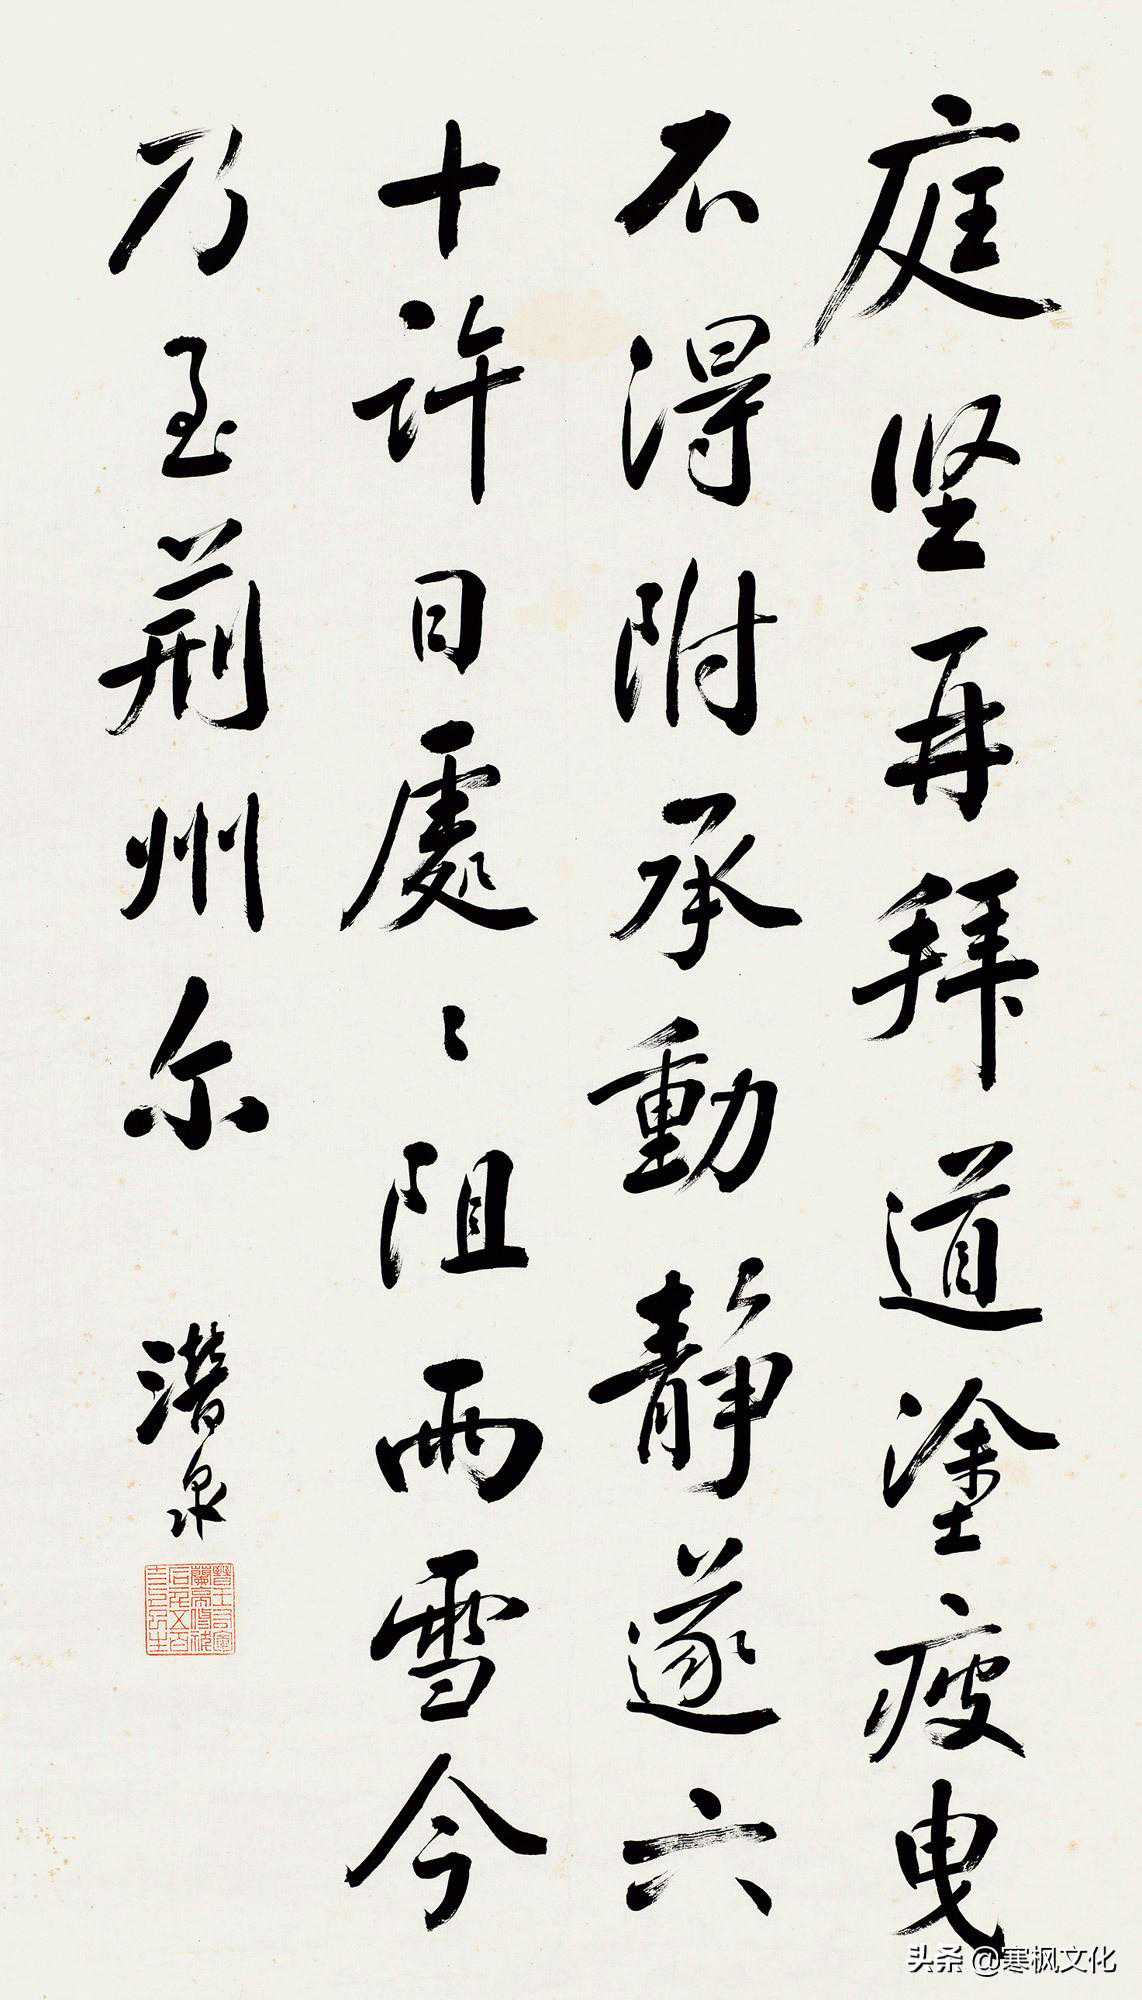 庭坚再拜道塗疲曳
不得附承動靜遂六
十許日處〻阻雨雪今
乃至荆州尔
潛泉
頭条 @寒枫文化